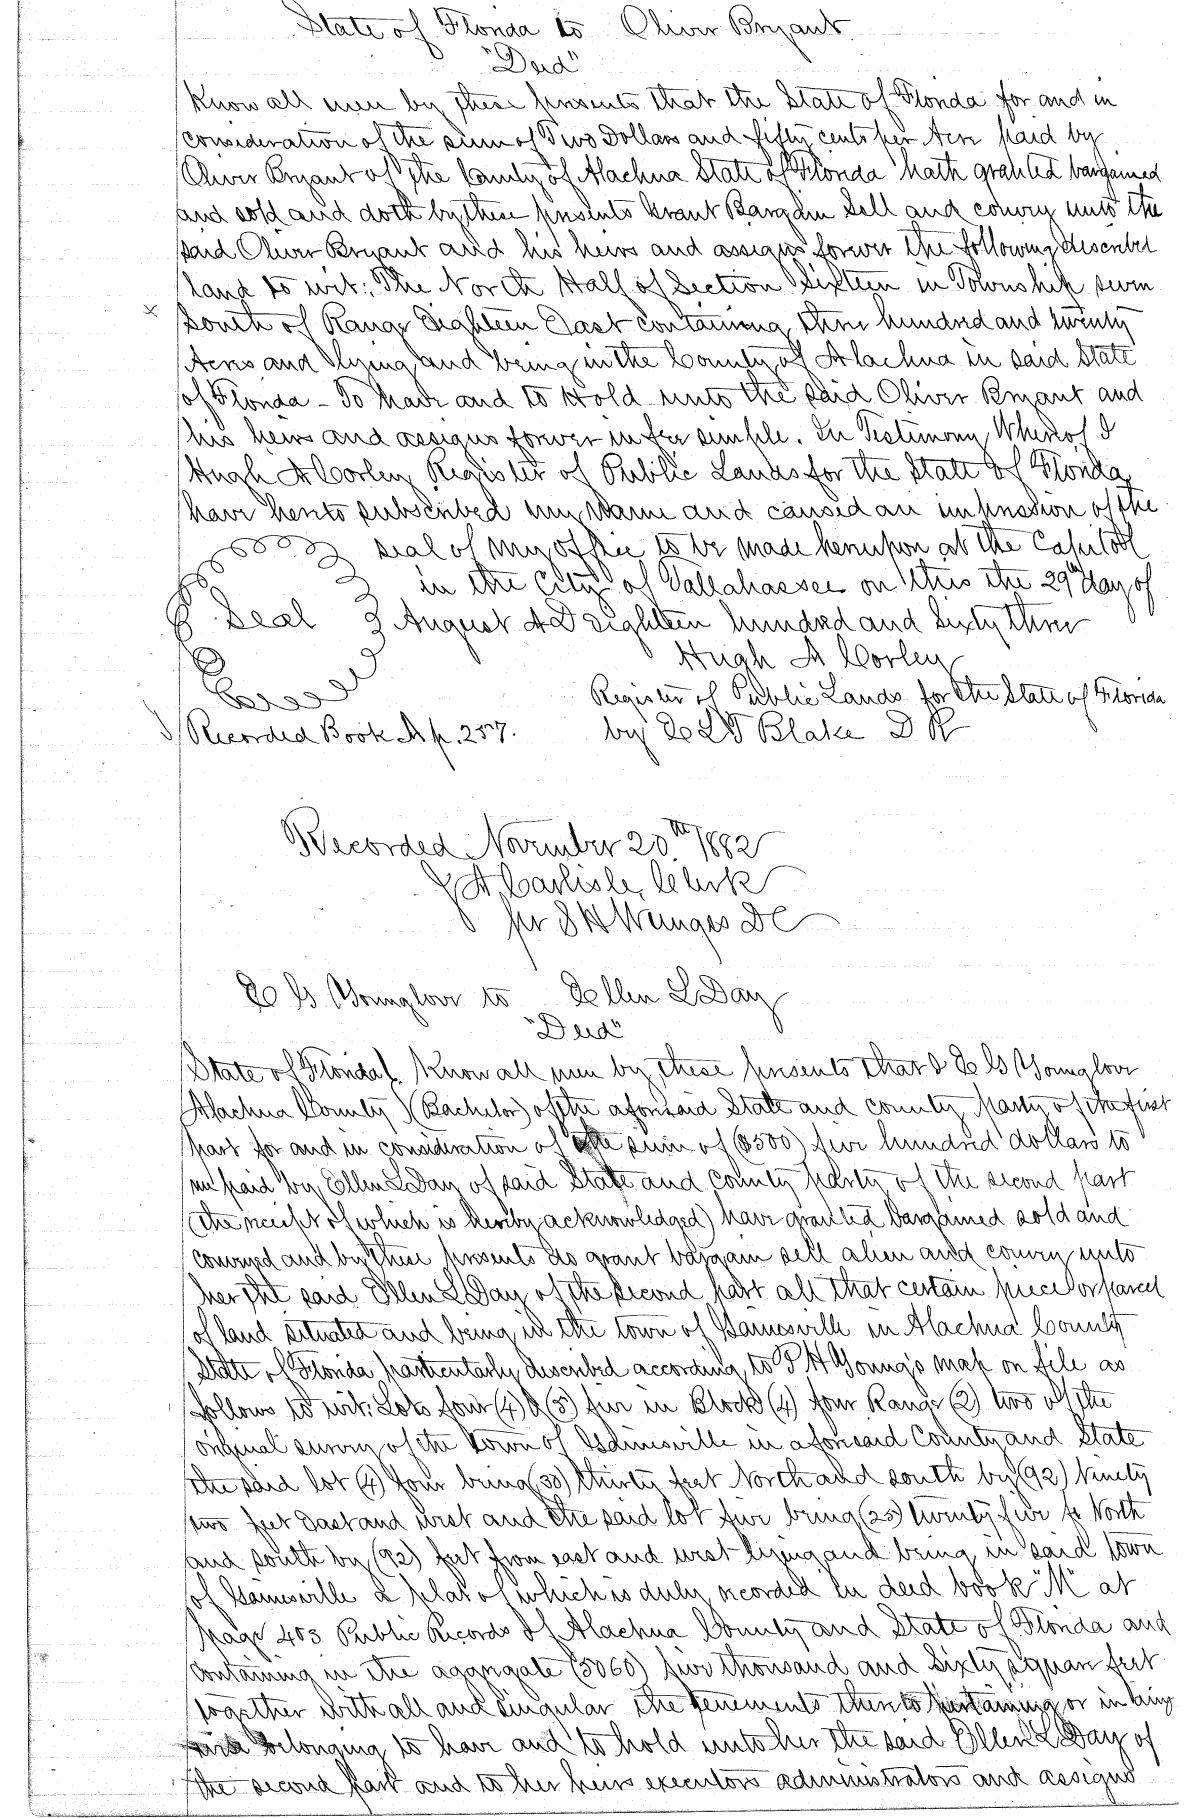 State of Florida to Oliver Bryant
"Deed"
Know all men by these presents that the State of Florida for and in
consideration of the sum of Two Dollars and fifty cents per Acre paid by
Oliver Bryant of the County of Alachua State of Florida hath granted bargained
and sold and doth by these presents Grant Bargain Sell and convey unto the
said Oliver Bryant and his heirs and assigns forever the following described
land to wit: The North Half of Section Sixteen in Township seven
x South of Range Eighteen East containing three hundred and twenty
Acres and lying and being in the County of Alachua in said State
of Florida - To have and to Hold unto the said Oliver Bryant and
his heirs and assigns forever in fee simple. In Testimony Whereof I
Hugh A Corley Register of Public Lands for the State of Florida
have hereto subscribed my Name and caused an impression of the
seal of my office to be made hereupon at the Capitol
in the City of Tallahassee on this the 29th day of
Seal August A D Eighteen hundred and Sixty three
Hugh A Corley
Register of Public Lands for the State of Florida
Recorded Book A p. 257. by E L T Blake D R
Recorded November 20th 1882
J A Carlisle, Clerk
per S H Wienges D C
E G Younglove to Ellen L Day
"Deed"
State of Florida } Know all men by these presents that I E G Younglove
Alachua County } (Bachelor) of the aforesaid State and county party of the first
part for and in consideration of the sum of ($500) five hundred dollars to
me paid by Ellen L Day of said State and county party of the second part
(the receipt of which is hereby acknowledged) have granted bargained sold and
conveyed and by these presents do grant bargain sell alien and convey unto
her the said Ellen L Day of the second part all that certain piece or parcel
of land situated and being in the town of Gainesville in Alachua County
State of Florida particularly described according to P H Young's map on file as
follows to wit: Lots four (4) & (5) five in Block (4) four Range (2) two of the
original survey of the town of Gainesville in aforesaid County and State
the said lot (4) four being (30) thirty feet North and south by (92) Ninety
two feet East and west and the said lot five being (25) twenty five ft North
and south by (92) feet from east and west lying and being in said town
of Gainesville a plat of which is duly recorded in deed book "M" at
page 403 Public Records of Alachua County and State of Florida and
containing in the aggregate (5060) five thousand and Sixty square feet
together with all and singular the tenements thereto pertaining or in any
wise belonging to have and to hold unto her the said Ellen L Day of
the second part and to her heirs executors administrators and assigns